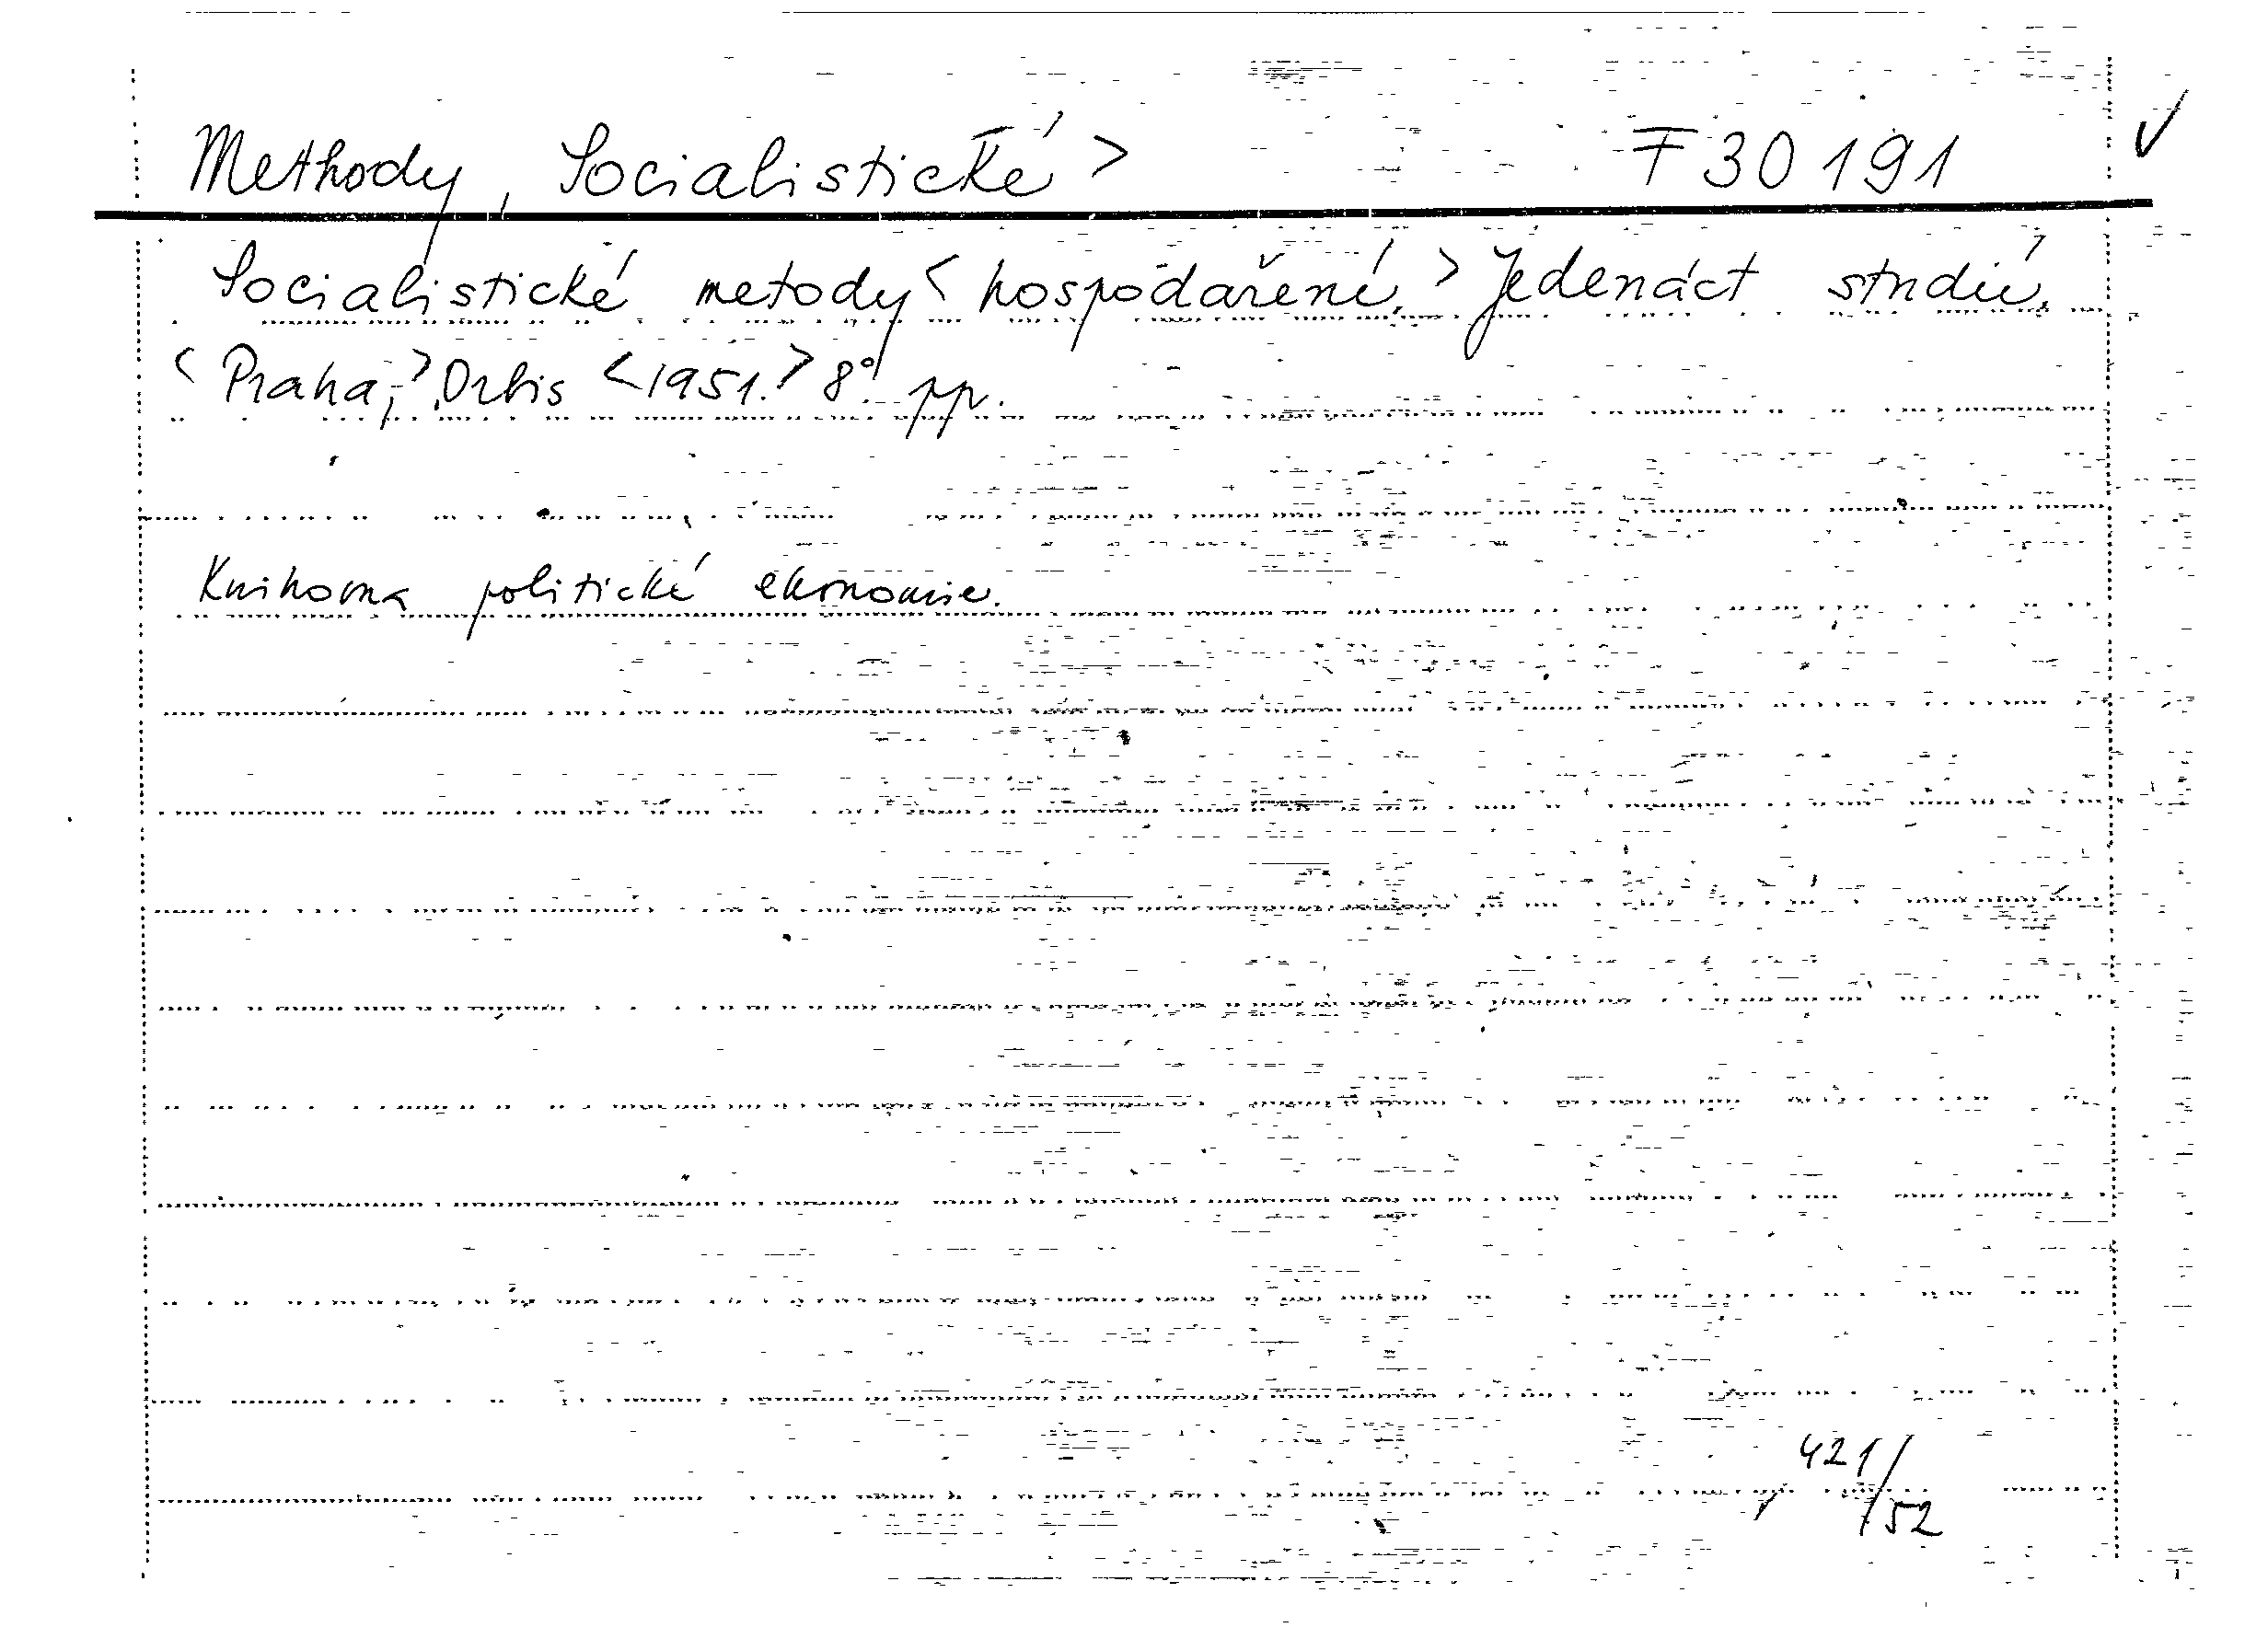 Methody, Socialistické > F 30 191 ✓
Socialistické metody < hospodaření. > Jedenáct studií.
< Praha, > Orbis < 1951. > 8°. pp.
Knihovna politické ekonomie.
421/52